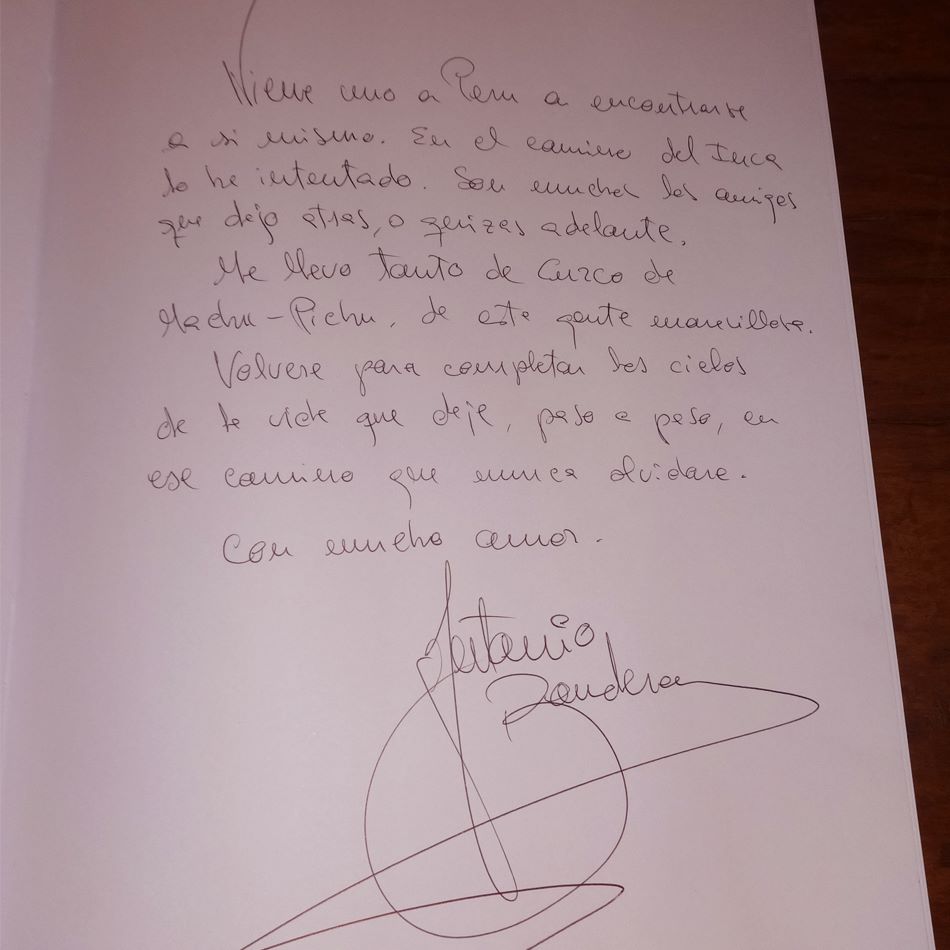 Viene uno a Peru a encontrarse
a si mismo. En el camino del Inca
lo he intentado. Son muchos los amigos
que dejo atras, o quizas adelante.
Me llevo tanto de Cuzco de
Machu-Pichu, de esta gente maravillosa.
Volvere para completar los cielos
de la vida que deje, paso a paso, en
ese camino que nunca olvidare.
Con mucho amor.
Antonio
Banderas